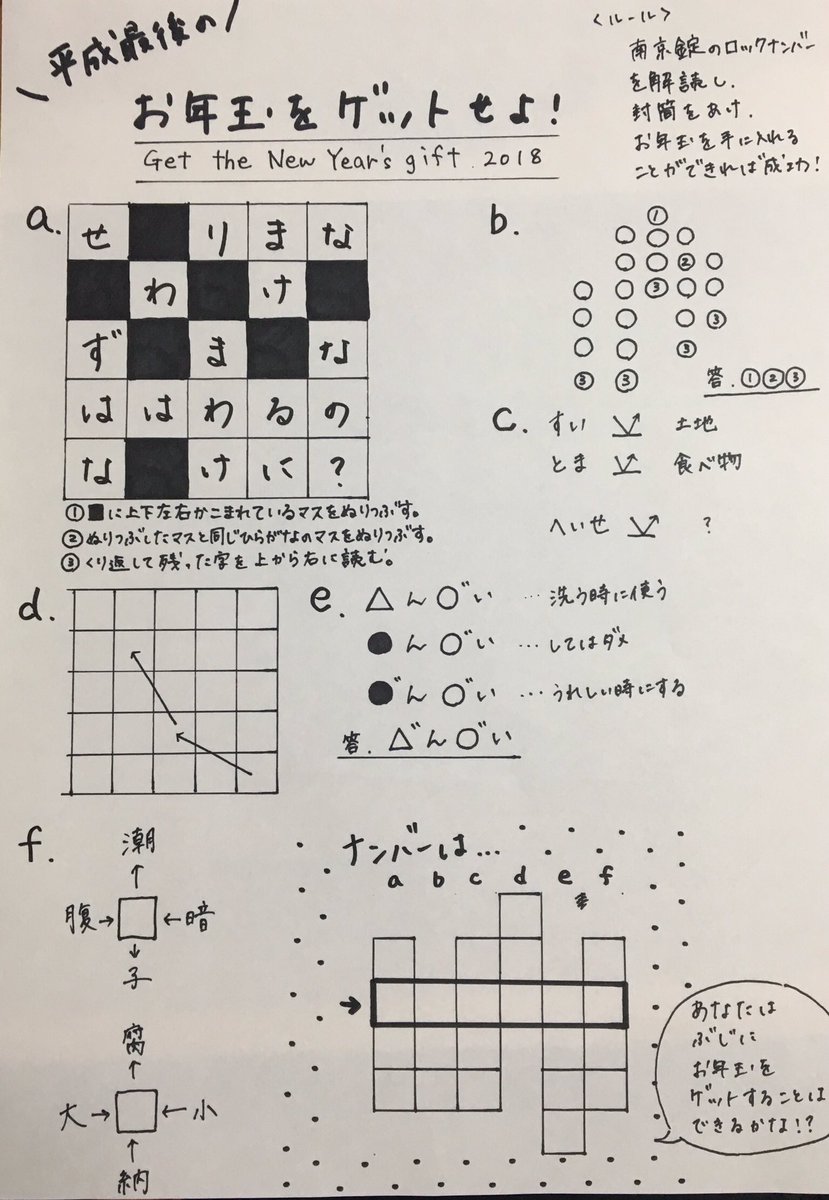 平成最後の
お年玉をゲットせよ！
Get the New Year's gift 2018
<ルール>
南京錠のロックナンバー
を解読し、
封筒をあけ、
お年玉を手に入れる
ことができれば成功！
a.
せ ■ り ま な
■ わ ■ け ■
ず ■ ま ■ な
は は わ る の
な ■ け に ?
①■に上下左右かこまれているマスをぬりつぶす。
②ぬりつぶしたマスと同じひらがなのマスをぬりつぶす。
③くり返して残った字を上から右に読む。
b.
①
○○○
○○②○
○○③○○
○○○③
○○③
③③
答.①②③
c.
すい 土地
とま 食べ物
へいせ ?
d.
e.
△ん○゛い …洗う時に使う
●ん○゛い …してはダメ
●゛ん○゛い …うれしい時にする
答.△゛ん○゛い
f.
潮
↑
腹→□←暗
↓
子
腐
↑
大→□←小
↑
納
ナンバーは…
a b c d e f
→
あなたは
ぶじに
お年玉を
ゲットすることは
できるかな!?